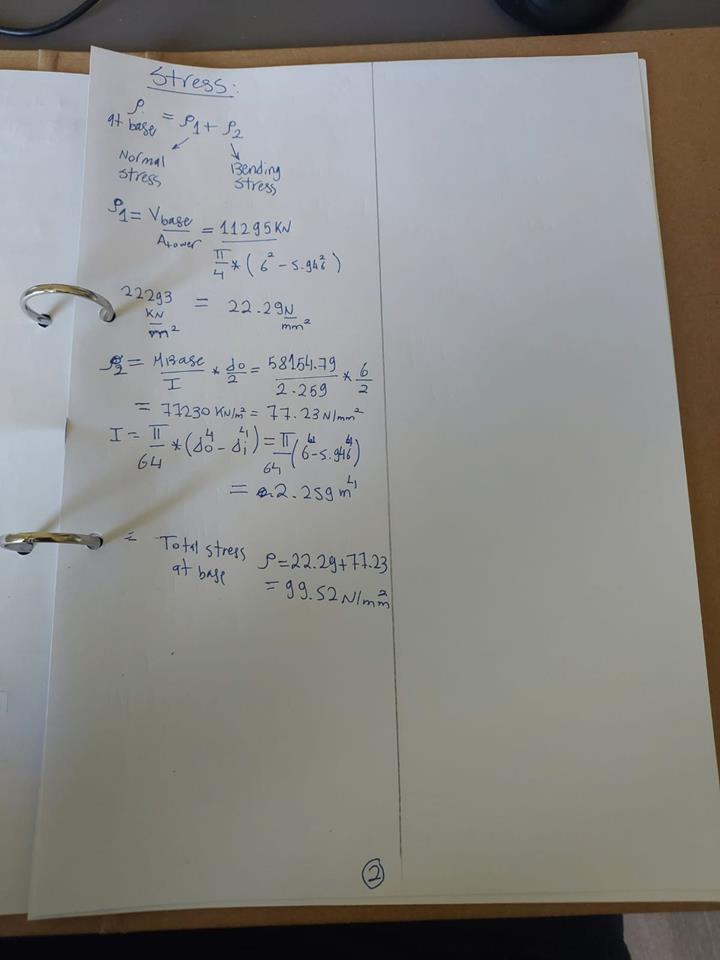 Stress:
ρ at base = ρ1 + ρ2
Normal stress
Bending stress
ρ1 = Vbase / Atower = 11295 KN / (π/4 * (6² - 5.946²))
22293 KN/m² = 22.29 N/mm²
ρ2 = MBase / I * do/2 = 58154.79 / 2.259 * 6/2
= 77230 KN/m² = 77.23 N/mm²
I = π/64 * (do⁴ - di⁴) = π/64 (6⁴ - 5.946⁴)
= 2.259 m⁴
= Total stress at base ρ = 22.29 + 77.23
= 99.52 N/mm²
2